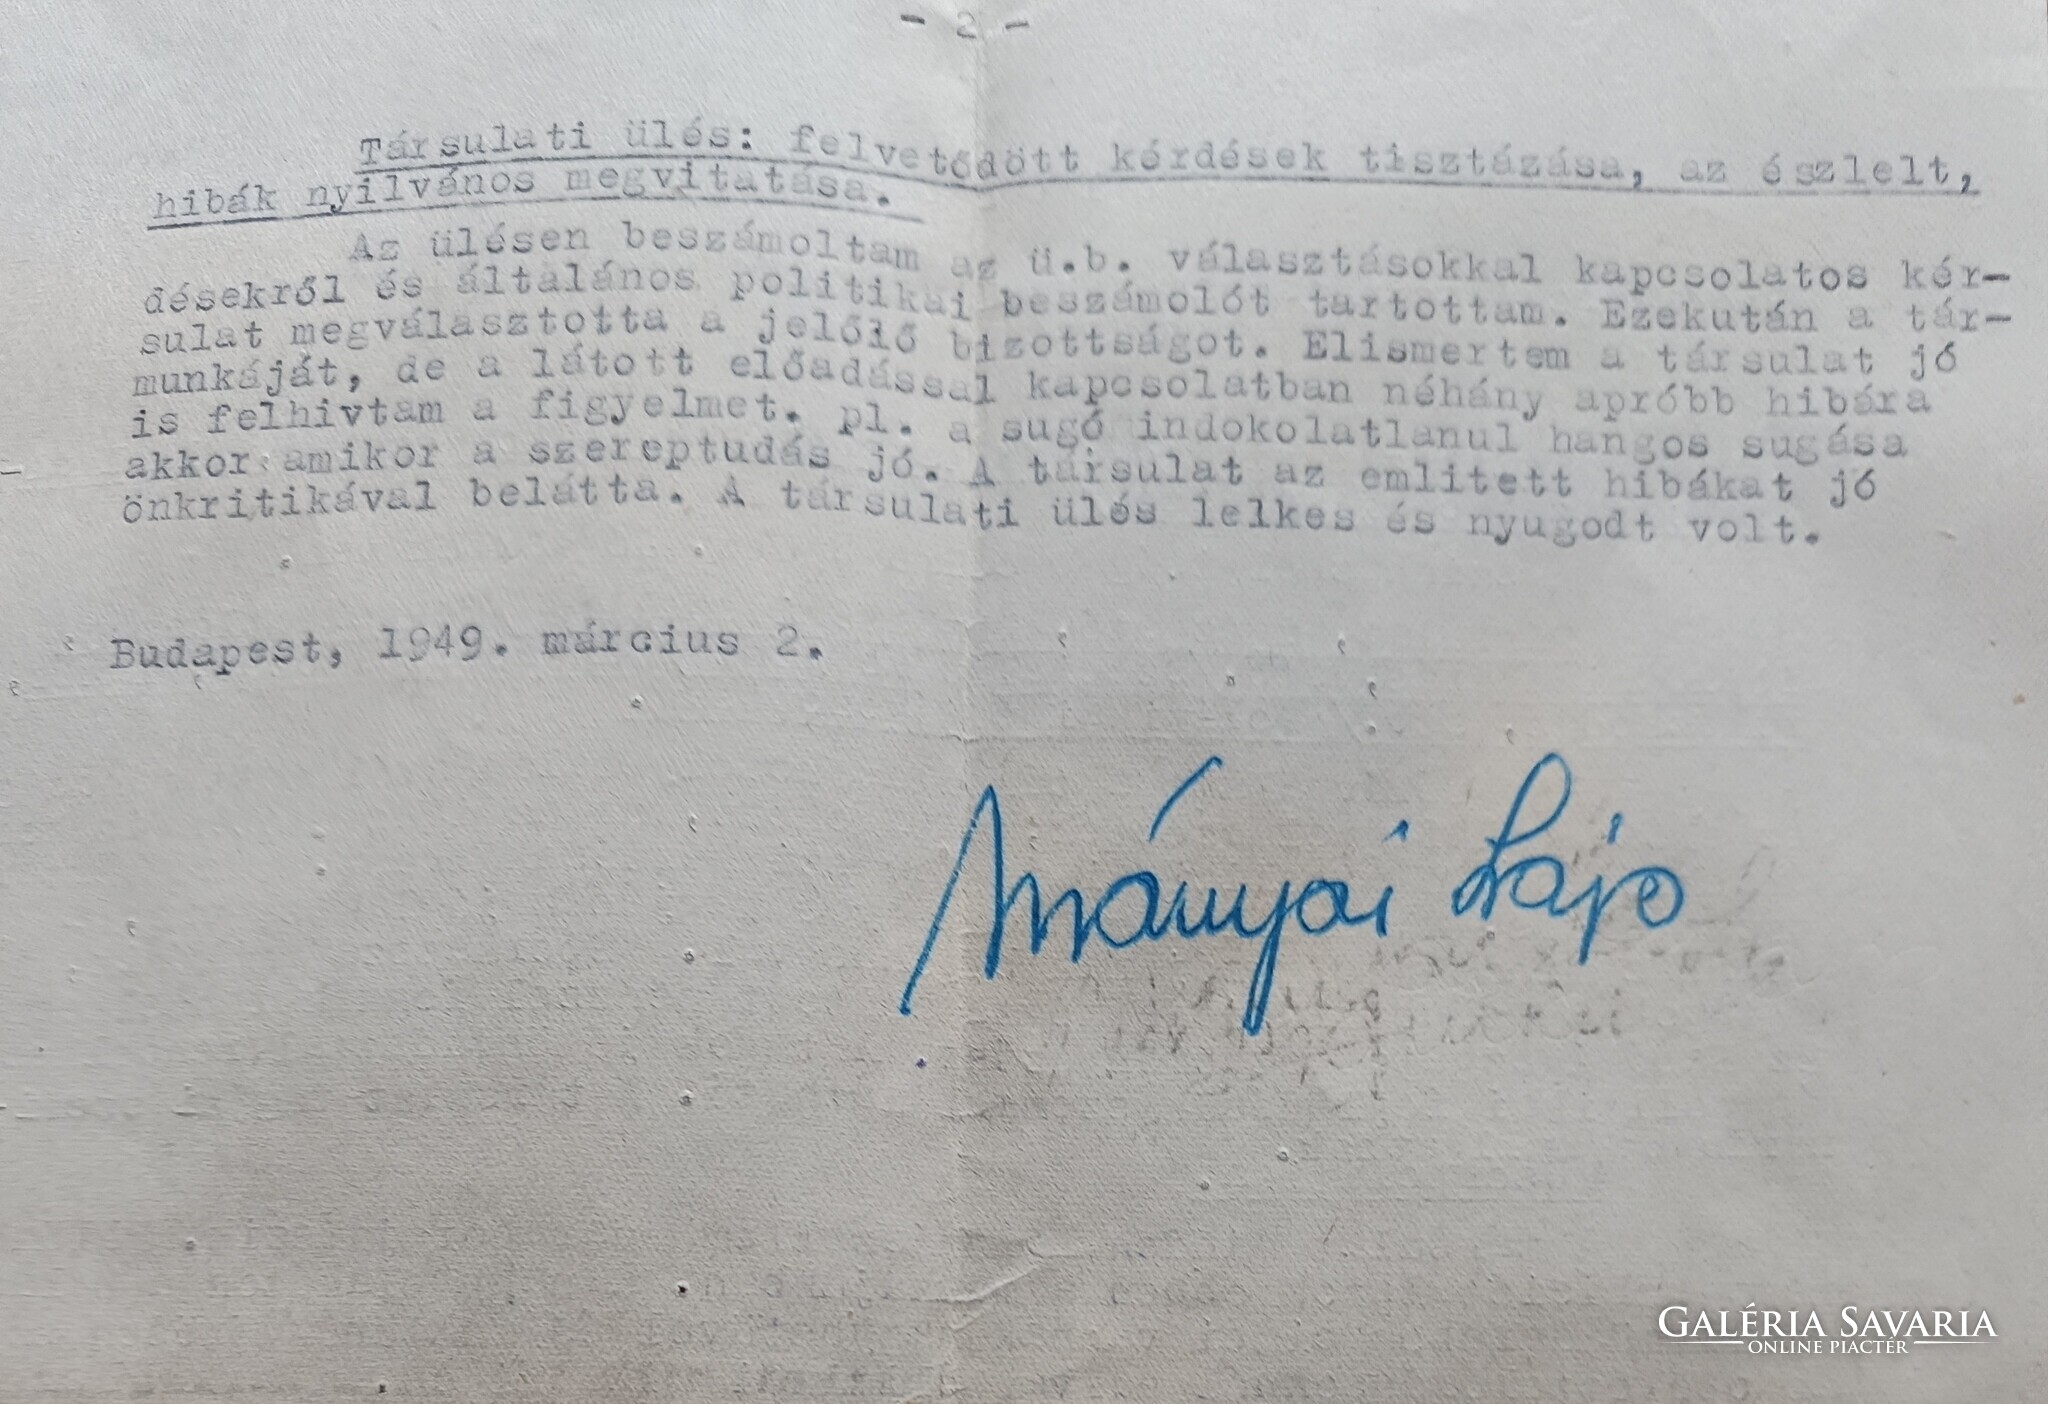 - 2 -
Társulati ülés: felvetődött kérdések tisztázása, az észlelt,
hibák nyilvános megvitatása.
Az ülésen beszámoltam az ü.b. választásokkal kapcsolatos kér-
désekről és általános politikai beszámolót tartottam. Ezekután a tár-
sulat megválasztotta a jelölő bizottságot. Elismertem a társulat jó
munkáját, de a látott előadással kapcsolatban néhány apróbb hibára
is felhivtam a figyelmet. pl. a sugó indokolatlanul hangos sugása
akkor amikor a szereptudás jó. A társulat az emlitett hibákat jó
önkritikával belátta. A társulati ülés lelkes és nyugodt volt.
Budapest, 1949. március 2.
Mányai Lajos
GALÉRIA SAVARIA
ONLINE PIACTÉR